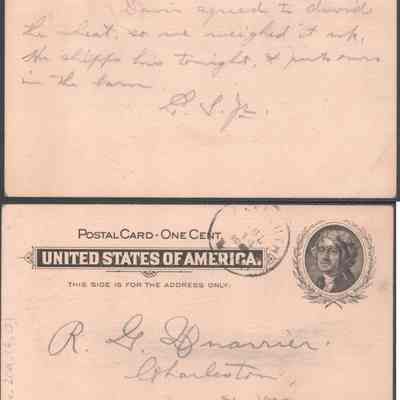 Davis agreed to divide
the wheat, so we weighed it up.
He shipps his tonight, & puts ours
in the barn.
POSTAL CARD - ONE CENT.
UNITED STATES OF AMERICA.
THIS SIDE IS FOR THE ADDRESS ONLY.
R. G.
Charleston,